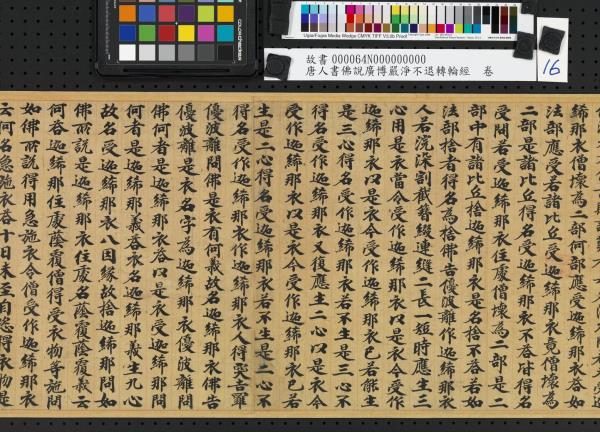 Ugra/Fogra Media Wedge CMYK TIFF V3.0b Proof
故書 000064N000000000
唐人書佛說廣博嚴淨不退轉輪經 卷
16
締那衣僧壞為二部何部應受迦締那衣答如
法部應受若諸比丘受迦締那衣竟僧壞為
二部是諸比丘得名受迦締那衣不答得名
受問若受迦締那衣竟僧壞為二部是二
部中有諸比丘捨迦締那衣是名捨不答若如
法部捨者得名為捨佛告優波離作迦締那衣
人若浣染割截綴連縫二長一短時應生三
心用是衣當令受作迦締那衣以是衣令受作
迦締那衣以是衣令受作迦締那衣已若能生
是三心得名受作迦締那衣若不生是三心不
得名受作迦締那衣又復應生二心以是衣令
受作迦締那衣以是衣令受作迦締那衣已若
生是二心得名受迦締那衣若不生是二心不
得名受作迦締那衣作迦締那衣人得吉羅
優波離問佛是衣有何義故名迦締那衣佛告
優波離是衣名字為迦締那衣優波離問
佛何者是迦締那衣答以是衣受迦締那衣問
何者是迦締那義答衣名迦締那義生九心
故名受迦締那衣八因緣故捨迦締那衣問如
佛所說是迦締那衣住處名蔭覆蔭覆義云
何答迦締那住處蔭覆僧得受衣物等施問
如佛所說得用急施衣令僧受作迦締那衣
云何名急施衣答十日未至自恣得衣物是